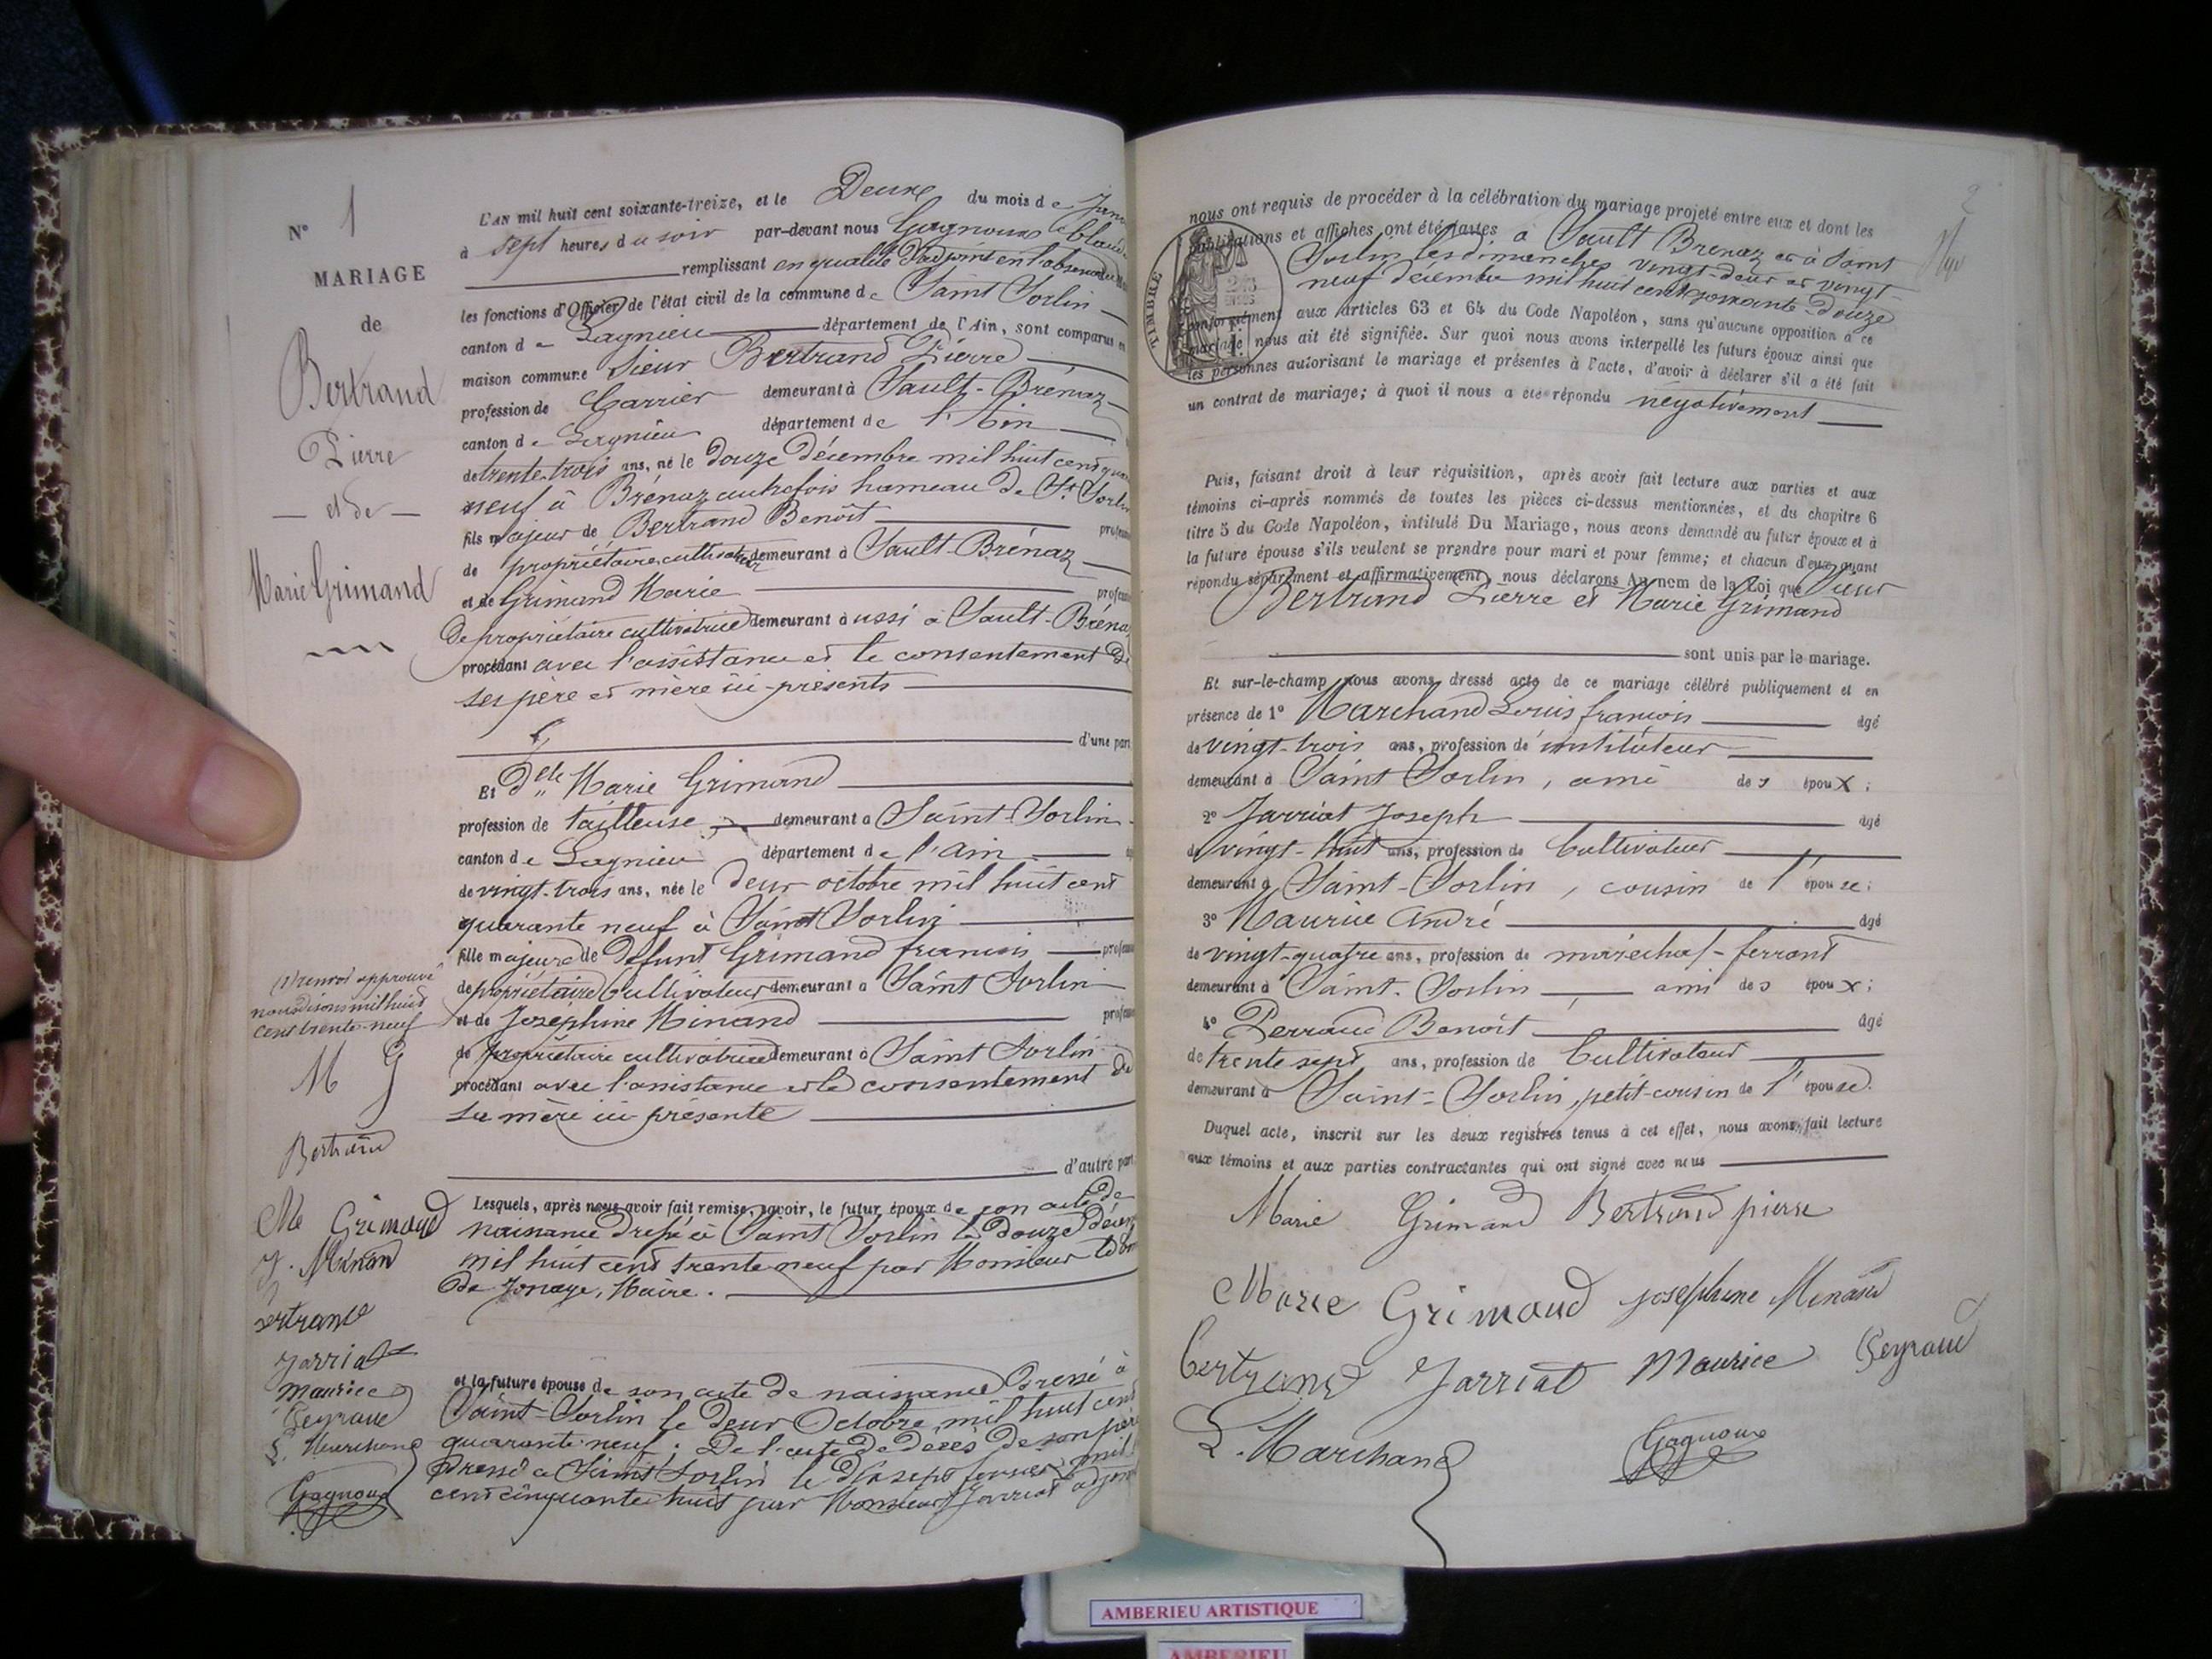 N° 1
MARIAGE
de
Bertrand
Pierre
— et de —
Marie Grimand
L'AN mil huit cent soixante-treize, et le Deux du mois de
à sept heures du soir par-devant nous Gagnoux
remplissant en qualité d'adjoint en l'absence
les fonctions d'Officier de l'état civil de la commune de Saint Sorlin
canton de Lagnieu département de l'Ain, sont comparus en
maison commune Sieur Bertrand Pierre
profession de Carrier demeurant à Sault-Brénaz
canton de Lagnieu département de l'Ain
de trente trois ans, né le douze décembre mil huit cent
neuf à Brénaz autrefois hameau de St Sorlin
fils majeur de Bertrand Benoît
de propriétaire cultivateur demeurant à Sault-Brénaz
et de Grimand Marie
de propriétaire cultivatrice demeurant aussi à Sault-Bréna
procédant avec l'assistance et le consentement de
ses père et mère ici présents
d'une part
Et dlle Marie Grimand
profession de tailleuse demeurant à Saint-Sorlin
canton de Lagnieu département de l'ain
de vingt-trois ans, née le deux octobre mil huit cent
quarante neuf à Saint Sorlin
fille majeure de défunt Grimand francois
de propriétaire Cultivateur demeurant à Saint Sorlin
et de Josephine Minand
de propriétaire cultivatrice demeurant à Saint Sorlin
procédant avec l'assistance et le consentement de
sa mère ici présente
d'autre part
Lesquels, après nous avoir fait remise, savoir, le futur époux de son acte de
naissance dressé à Saint Sorlin le douze
mil huit cent trente neuf par Monsieur
de Jonage, Maire.
et la future épouse de son acte de naissance dressé à
Saint-Sorlin le deux Octobre mil huit cent
quarante neuf; De l'acte de décès de son père
dressé à Saint Sorlin le
cent cinquante huit par Monsieur Jarriat
(1) renvoi approuvé
nous disons mil huit
cent trente-neuf
M G
Bertrand
Me Grimaud
J. Minan
Jarriat
Maurice
Peyraud
L. Marchand
Gagnoux
2
nous ont requis de procéder à la célébration du mariage projeté entre eux et dont les
publications et affiches ont été faites à Sault Brénaz et à Saint
Sorlin les dimanches vingt-deux et vingt-
neuf décembre mil huit cent soixante-douze
TIMBRE
conformément aux articles 63 et 64 du Code Napoléon, sans qu'aucune opposition à ce
mariage nous ait été signifiée. Sur quoi nous avons interpellé les futurs époux ainsi que
les personnes autorisant le mariage et présentes à l'acte, d'avoir à déclarer s'il a été fait
un contrat de mariage; à quoi il nous a été répondu négativement
Puis, faisant droit à leur réquisition, après avoir fait lecture aux parties et aux
témoins ci-après nommés de toutes les pièces ci-dessus mentionnées, et du chapitre 6
titre 5 du Code Napoléon, intitulé Du Mariage, nous avons demandé au futur époux et à
la future épouse s'ils veulent se prendre pour mari et pour femme; et chacun d'eux ayant
répondu séparément et affirmativement, nous déclarons Au nom de la Loi que Sieur
Bertrand Pierre et Marie Grimand
sont unis par le mariage.
Et sur-le-champ nous avons dressé acte de ce mariage célébré publiquement et en
présence de 1° Marchand Louis francois âgé
de vingt-trois ans, profession de instituteur
demeurant à Saint Sorlin, ami des époux;
2° Jarriat Joseph âgé
de vingt-huit ans, profession de Cultivateur
demeurant à Saint-Sorlin, cousin de l'épouse;
3° Maurice André âgé
de vingt-quatre ans, profession de maréchal-ferrant
demeurant à Saint-Sorlin ami des époux;
4° Perraud Benoît âgé
de trente sept ans, profession de Cultivateur
demeurant à Saint-Sorlin, petit-cousin de l'épouse.
Duquel acte, inscrit sur les deux registres tenus à cet effet, nous avons fait lecture
aux témoins et aux parties contractantes qui ont signé avec nous
Marie Grimand Bertrand pierre
Marie Grimaud josephine Minand
Bertrand Jarriat Maurice Peyraud
L. Marchand Gagnoux
AMBERIEU ARTISTIQUE
AMBERIEU